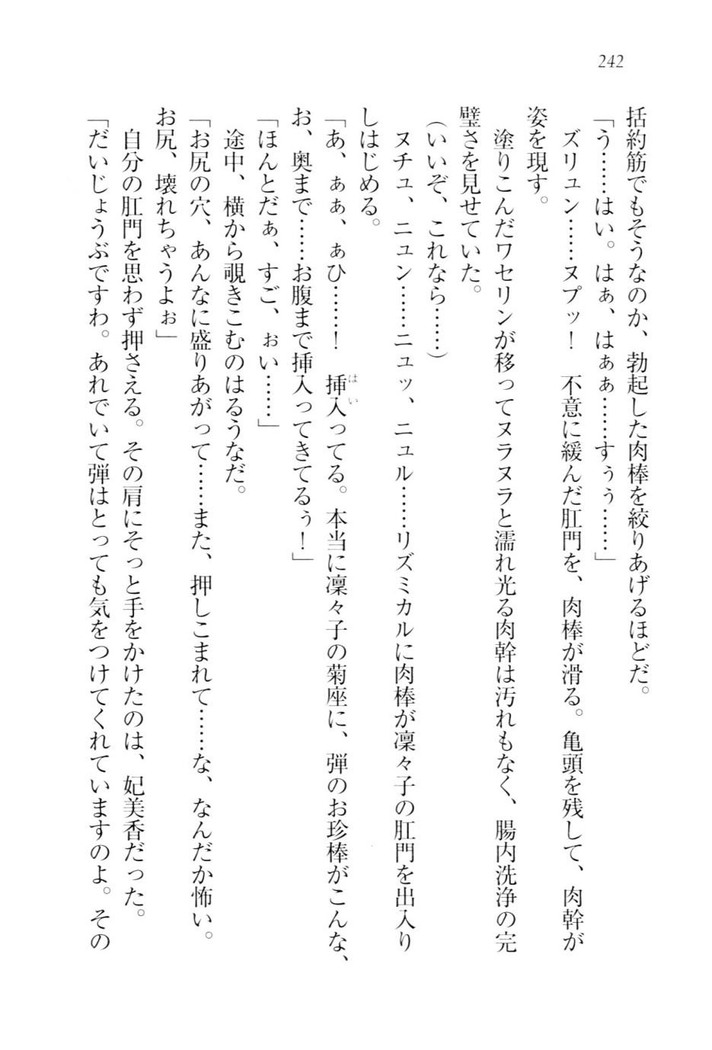 242
括約筋でもそうなのか、勃起した肉棒を絞りあげるほどだ。
「う……はい。はぁ、はぁぁ……すぅぅ……」
ズリュン……ヌプッ！　不意に緩んだ肛門を、肉棒が滑る。亀頭を残して、肉幹が
姿を現す。
塗りこんだワセリンが移ってヌラヌラと濡れ光る肉幹は汚れもなく、腸内洗浄の完
璧さを見せていた。
（いいぞ、これなら……）
ヌチュ、ニュン……ニュッ、ニュル……リズミカルに肉棒が凜々子の肛門を出入り
しはじめる。
「あ、ぁぁ、ぁひ……！　挿入ってる。本当に凜々子の菊座に、弾のお珍棒がこんな、
お、奥まで……お腹まで挿入ってきてるぅ！」
「ほんとだぁ、すご、ぉい……」
途中、横から覗きこむのはるうなだ。
「お尻の穴、あんなに盛りあがって……また、押しこまれて……な、なんだか怖い。
お尻、壊れちゃうよぉ」
自分の肛門を思わず押さえる。その肩にそっと手をかけたのは、妃美香だった。
「だいじょうぶですわ。あれでいて弾はとっても気をつけてくれていますのよ。その